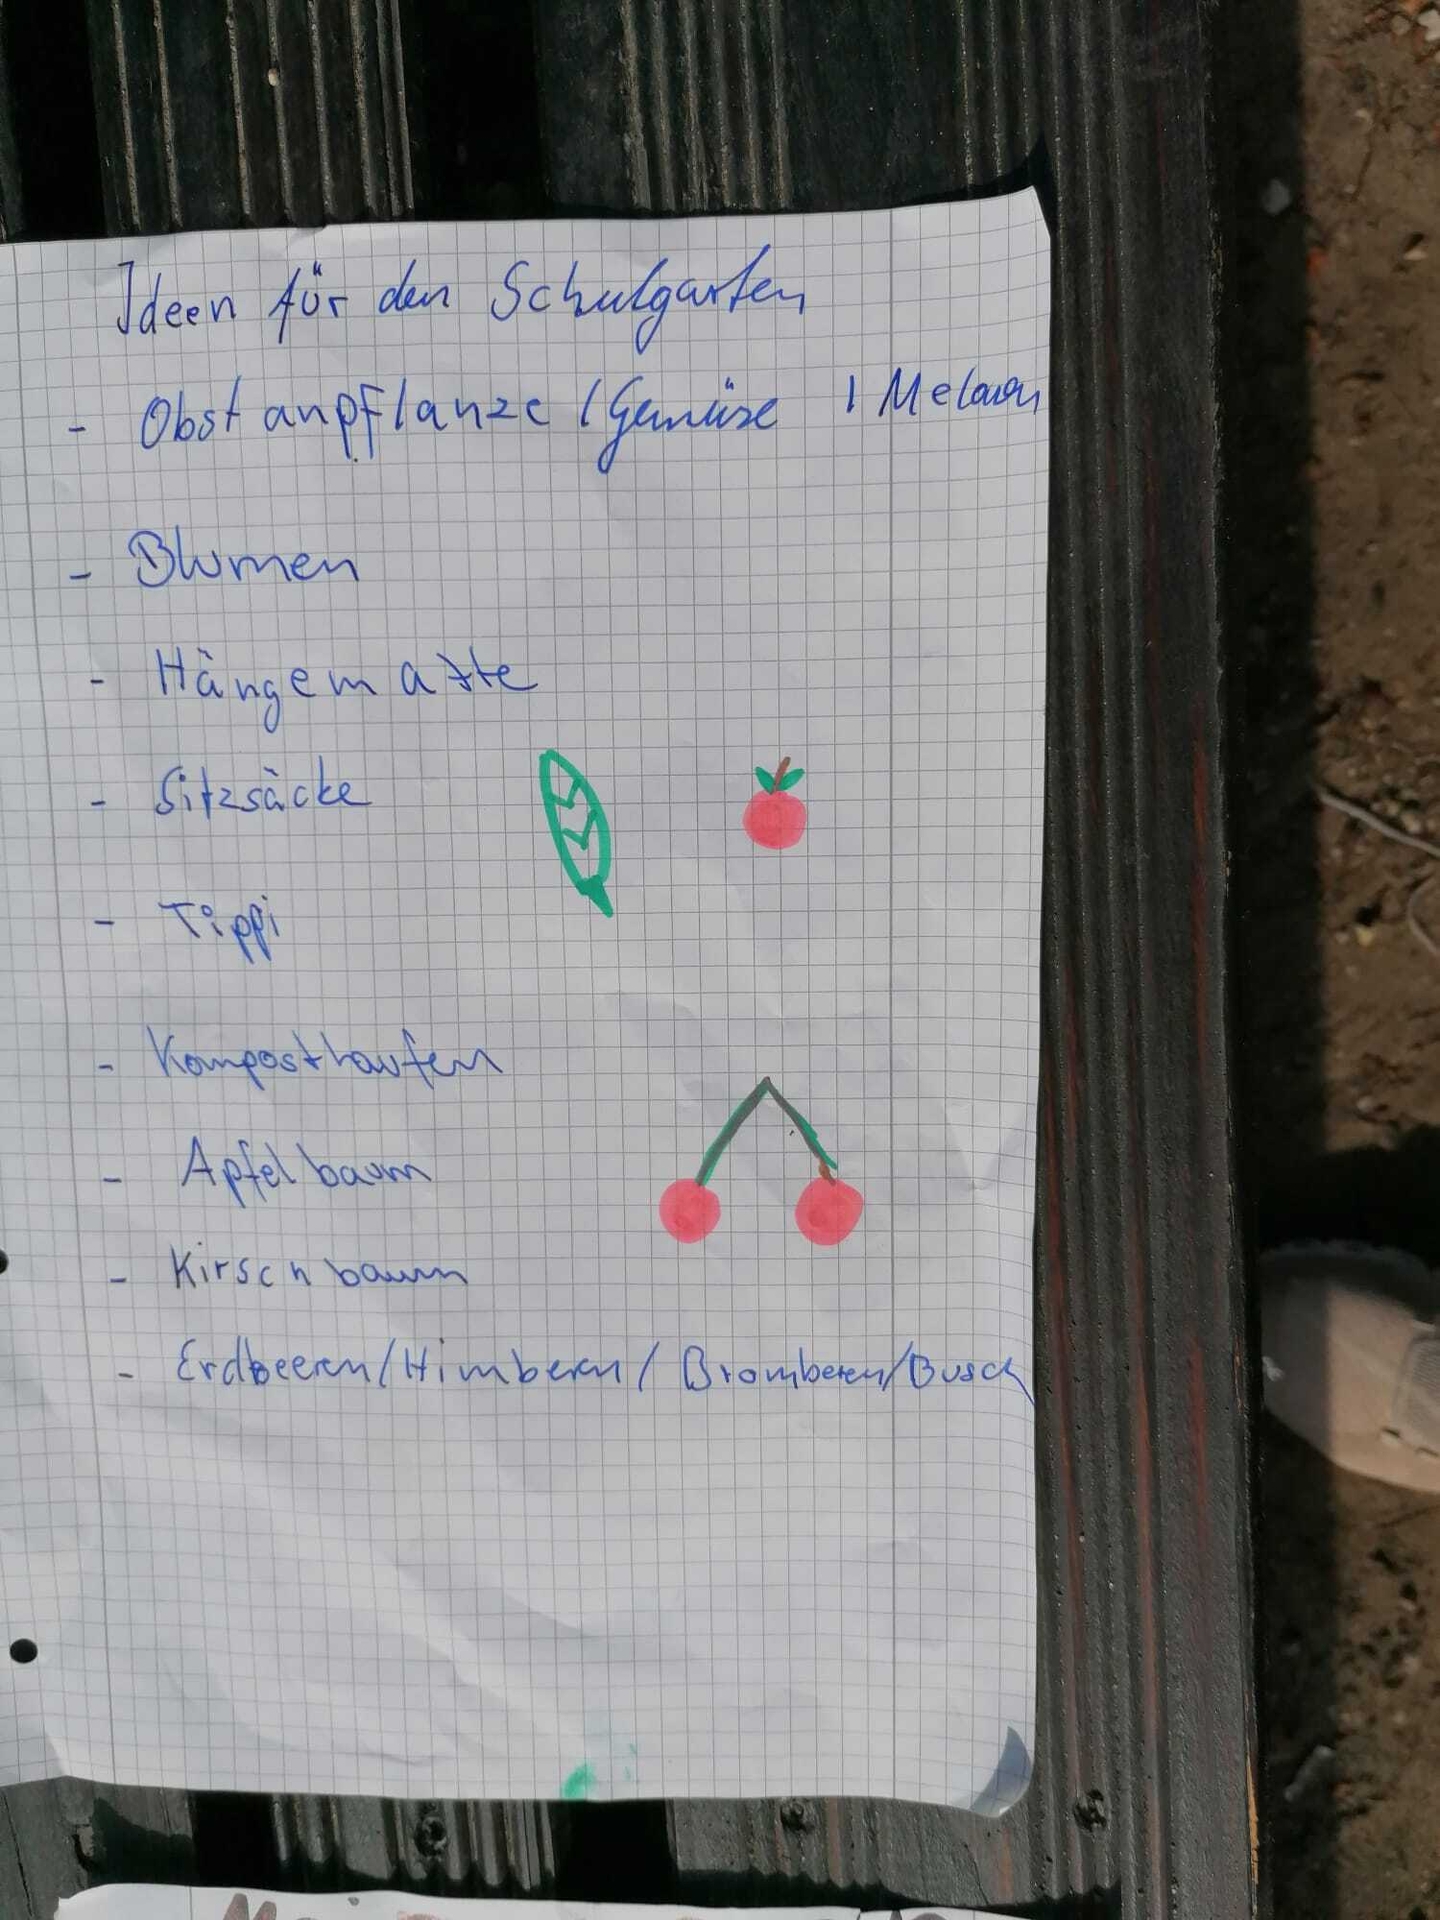 Ideen für den Schulgarten
- Obst anpflanze / Gemüse / Melonen
- Blumen
- Hängematte
- Sitzsäcke
- Tippi
- Komposthaufen
- Apfelbaum
- Kirschbaum
- Erdbeeren/Himbern/Bromberen/Busch